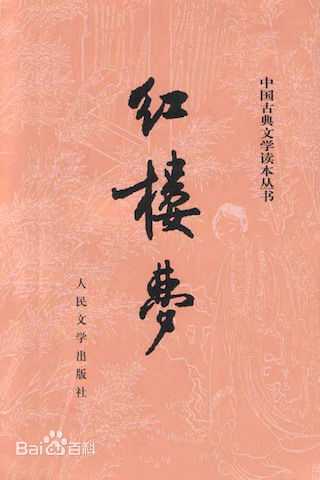 中国古典文学读本丛书
红楼梦
人民文学出版社
Bai百科